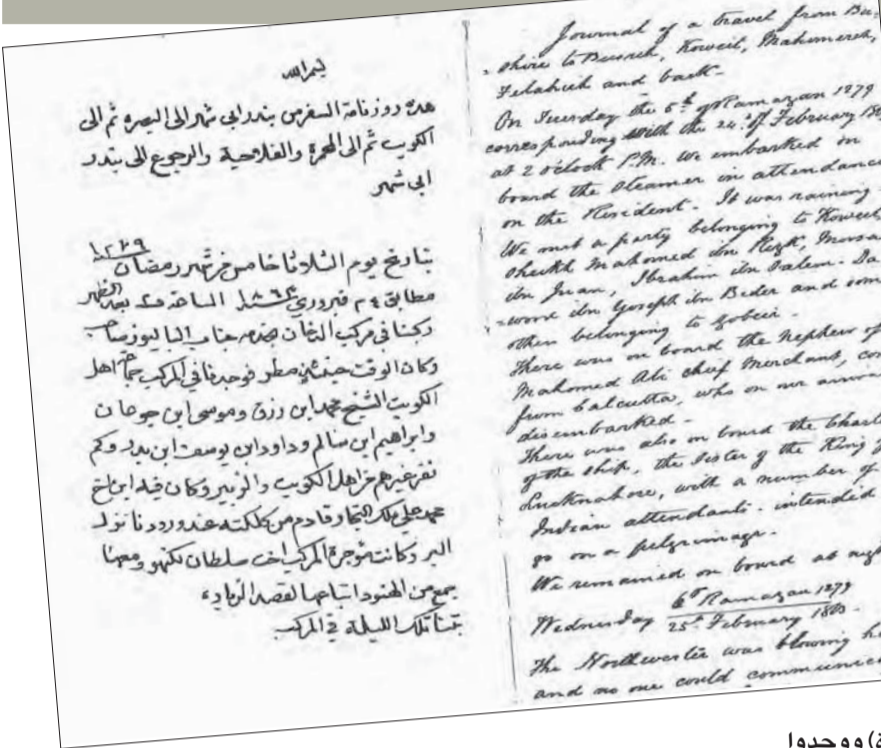 بسم الله
هذه روزنامة السفر من بندر ابي شهر الى البصره ثم الى
الكويت ثم الى المحمرة والفلاحية والرجوع الى بندر
ابي شهر
١٢٧٩
بتاريخ يوم الثلاثا خامس شهر رمضان
مطابق ٢٤ فبروري الساعة ٢ بعد الظهر
ركبنا في مركب الدخان جناب الباليوز
وكان الوقت حينئذ مطر فوجدنا في المركب اهل
الكويت الشيخ محمد ابن رزق وموسى ابن جوعان
وابراهيم ابن سالم وداود ابن يوسف ابن بدر وكم
نفر غيرهم من اهل الكويت والزبير وكان فيه ابن اخ
محمد علي ملك التجار قادم من كلكته عند ورودنا نزل
البر وكانت موجرة المركب اخت سلطان لكنهو ومعها
جمع من الهنود اتباعها لقصد الزياره
بتنا تلك الليلة في المركب
Journal of a travel from Bu-
-shire to Busreh, Koweit, Mahomereh,
Felahieh and back-
On Tuesday the 5th of Ramazan 1279
corresponding with the 24th of February
at 2 o'clock P.M. we embarked on
board the Steamer in attendance
on the Resident. It was raining-
We met a party belonging to Koweit,
Sheikh Mahomed ibn Rezk,
ibn Juan, Ibrahim ibn Salem. Da-
-wood ibn Yoseph ibn Beder and som
other belonging to Zobeir.
There was on board the Nephew of
Mahomed Ali chief Merchant, com
from Calcutta, who on our arriva
disembarked-
There was also on board the Chart
of the ship, the Sister of the King of
Lucknahore, with a number of
Indian attendants. intended
go on a pelgrimage.
We remained on board at nigh
Wednesday 6th Ramazan 1279
25th February 1863.
The Northwester was blowing ha
and no one could communica
ة) ووجدوا